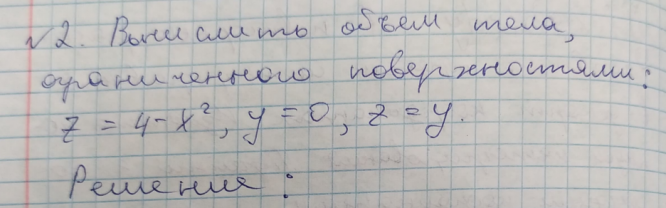 √2. Вычислить объем тела,
ограниченного поверхностями:
z = 4-x², y = 0, z = y.
Решение: